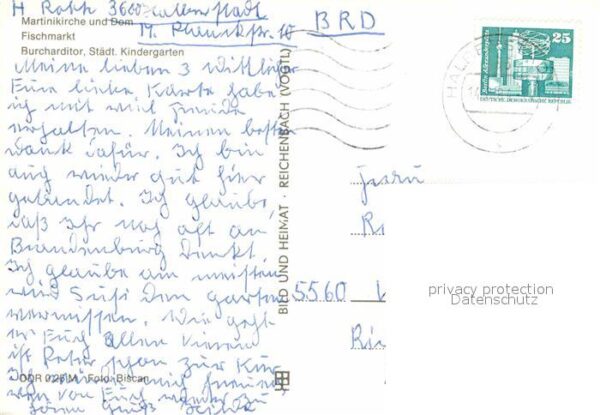 H Roth 3600 Halberstadt
M. Planckstr. 10 BRD
Martinikirche und Dom
Fischmarkt
Burcharditor, Städt. Kindergarten
Meine lieben 3 Wittlicher
Eure liebe Karte habe
ich mit viel Freude
erhalten. Meinen besten
Dank dafür. Ich bin
auch wieder gut hier
gelandet. Ich glaube,
daß Ihr noch oft an
Brandenburg denkt.
Ich glaube am meisten
wird Susi den Garten
vermissen. Wie geht
es Euch allen
ist Peter schon zur Kur
Ich würde mich freuen
von Euch wieder zu
hören Gruß
DDR 0,25 M Foto: Biscan
BILD UND HEIMAT · REICHENBACH (VOGTL)
25
Berlin, Alexanderplatz
DEUTSCHE DEMOKRATISCHE REPUBLIK
HAL
Herrn
5560 W
privacy protection
Datenschutz